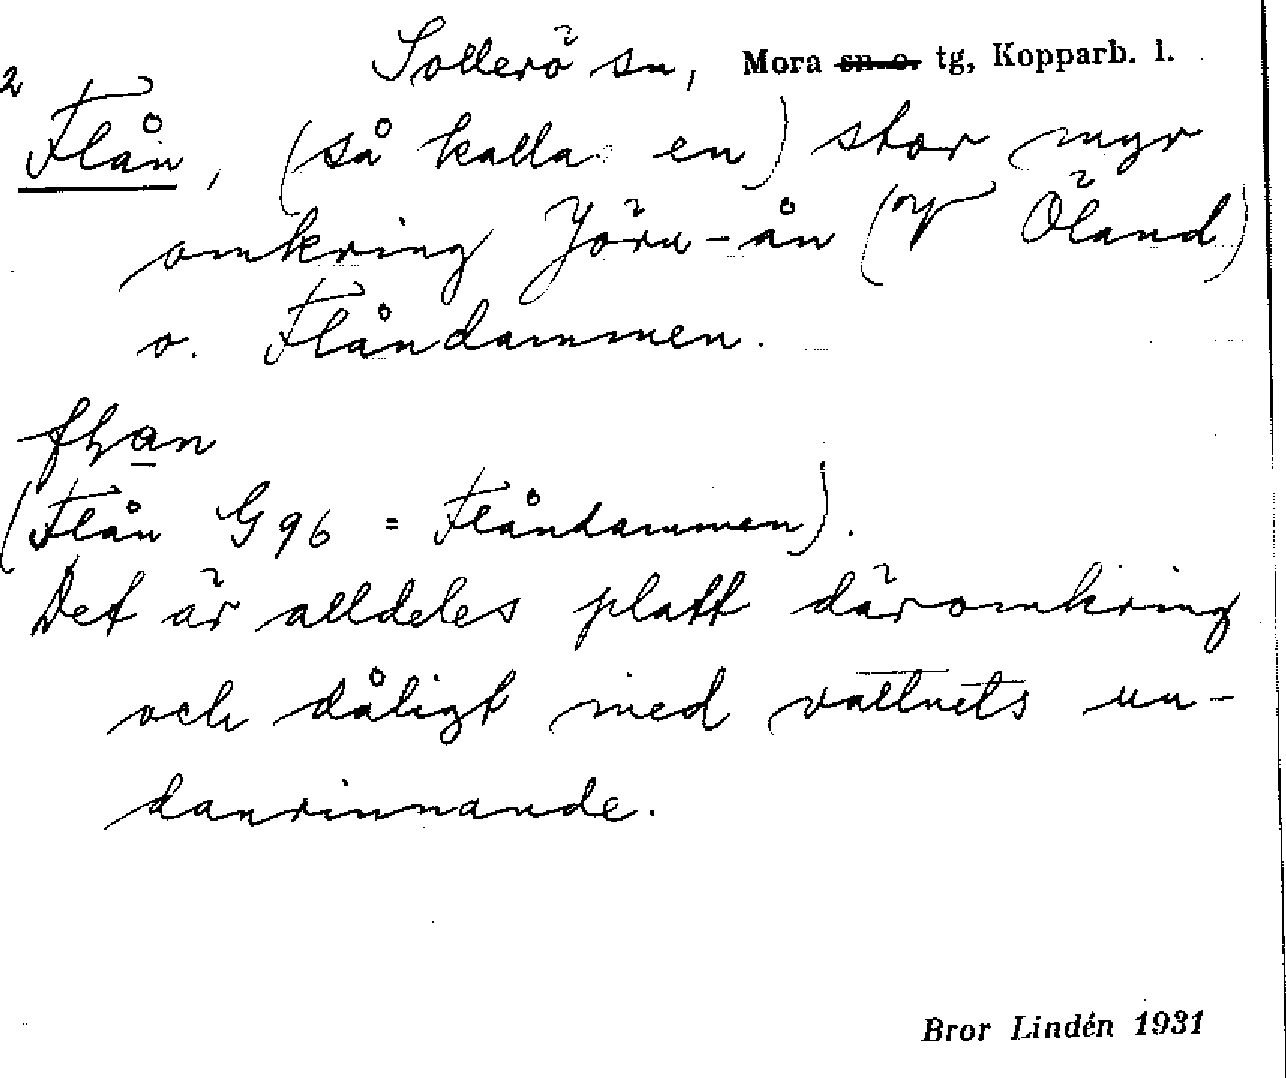 Sollerö sn, Mora sn o. tg, Kopparb. l.
2
Flån, (så kalla en) stor myr
omkring Jöru-ån (V Öland)
o. Flåndammen.
(Flån G 96 = Flåndammen).
Det är alldeles platt däromkring
och dåligt med vattnets un-
danrinnande.
Bror Lindén 1931